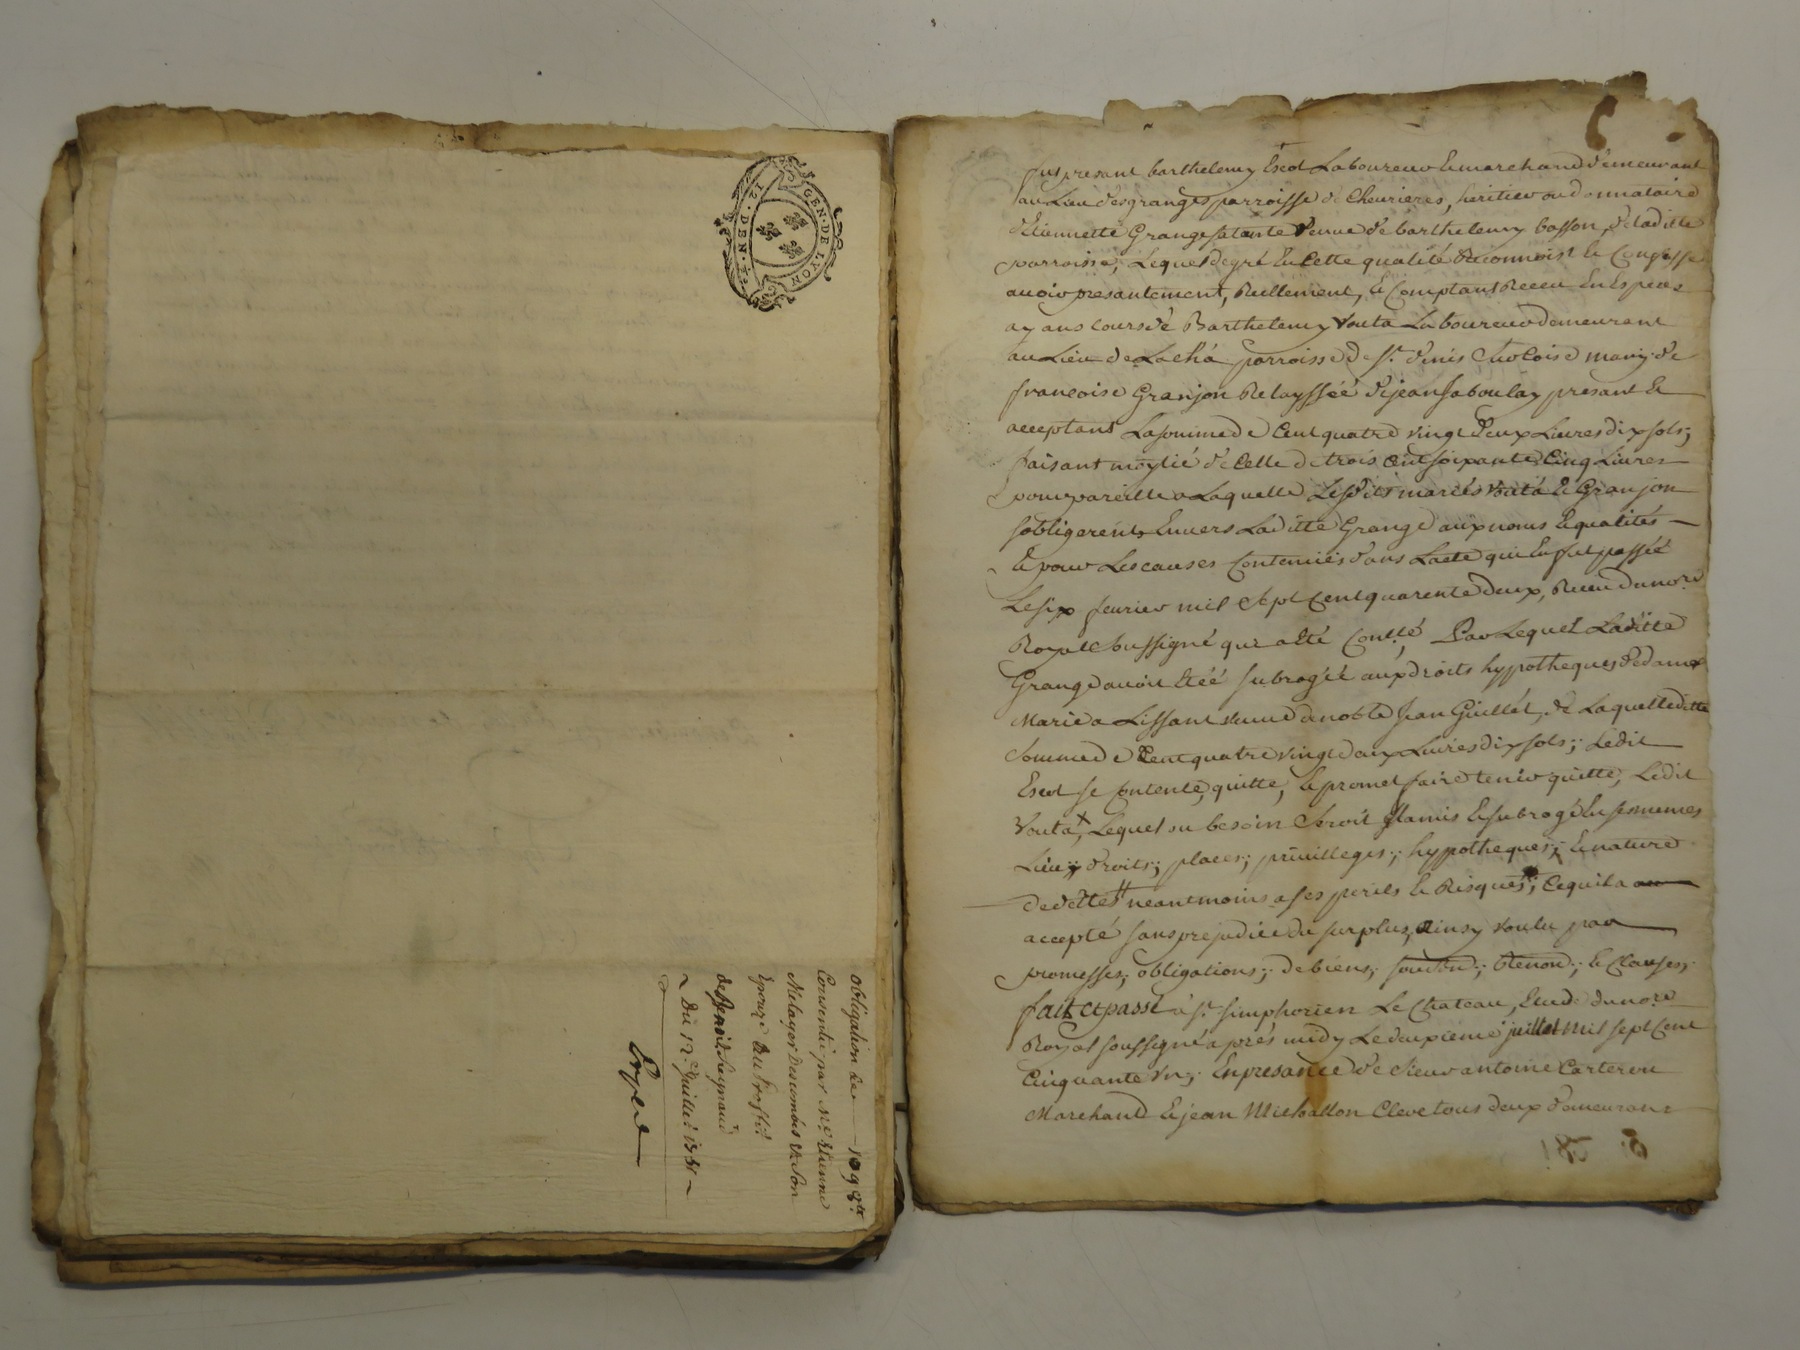 GEN. DE LYON
obligation de 1098tt
Consentie par Me Etienne
Metayer Descombes & Son
Epouze
Du 12e Juillet 1751
fut present barthelemy Escot Laboureur & marchand demeurant
au Lieu des granges parroisse de Chevrieres, heritier ou donnataire
d'Etiennette Grange sa tante Veuve de barthelemy basson, de laditte
parroisse, Lequel de gré En Cette qualité Reconnoist & Confesse
avoir presantement, Reellement, & Comptant Receu En Especes
ayans cours de Barthelemy Vouta Laboureur demeurant
au Lieu de Lachá parroisse de St. denis Sur Coise mary de
francoise Granjon Relayssée de jean Jaboulay presant &
acceptant La somme de Cent quatre vingt deux Livres dix sols;
faisant moytié de Celle de trois Cent soixante Cinq Livres
pour pareille a Laquelle Lesdits mariés Vouta & Granjon
s'obligerent Envers Laditte Grange aux noms & qualités
& pour Les causes Contenües dans Lacte qui En fut passé
Le six fevrier mil Sept Cent quarente deux, Receu du nore
Royal soussigné qui a Eté Conllé, Par Lequel Laditte
Grange avoit Etéé subrogéé aux droits hypotheques de dame
Marie a Lissant veuve de noble Jean Guillet, de Laquelle ditte
Somme de Cent quatre vingt deux Livres dix sols; Ledit
Escot se Contente, quitte, & promet faire tenir quitte, Ledit
Vouta, Lequel au besoin Seroit & Subrogé En ses memes
Lieu; droits; places; privilleges; hypotheques; & nature
de dettes neantmoins a ses perils & Risques; Ce qui la
accepté sans prejudice du surplus, ainsy voulu par
promesses; obligations; de biens; & Clauses;
fait et passé à St. Simphorien Le Chateau, Etude du nore
Royal soussigné aprés midy Le deuxieme juillet mil sept Cent
Cinquante Un; En presance de Sieur antoine Carteron
Marchand & jean Michallon Clerc tous deux demeurans